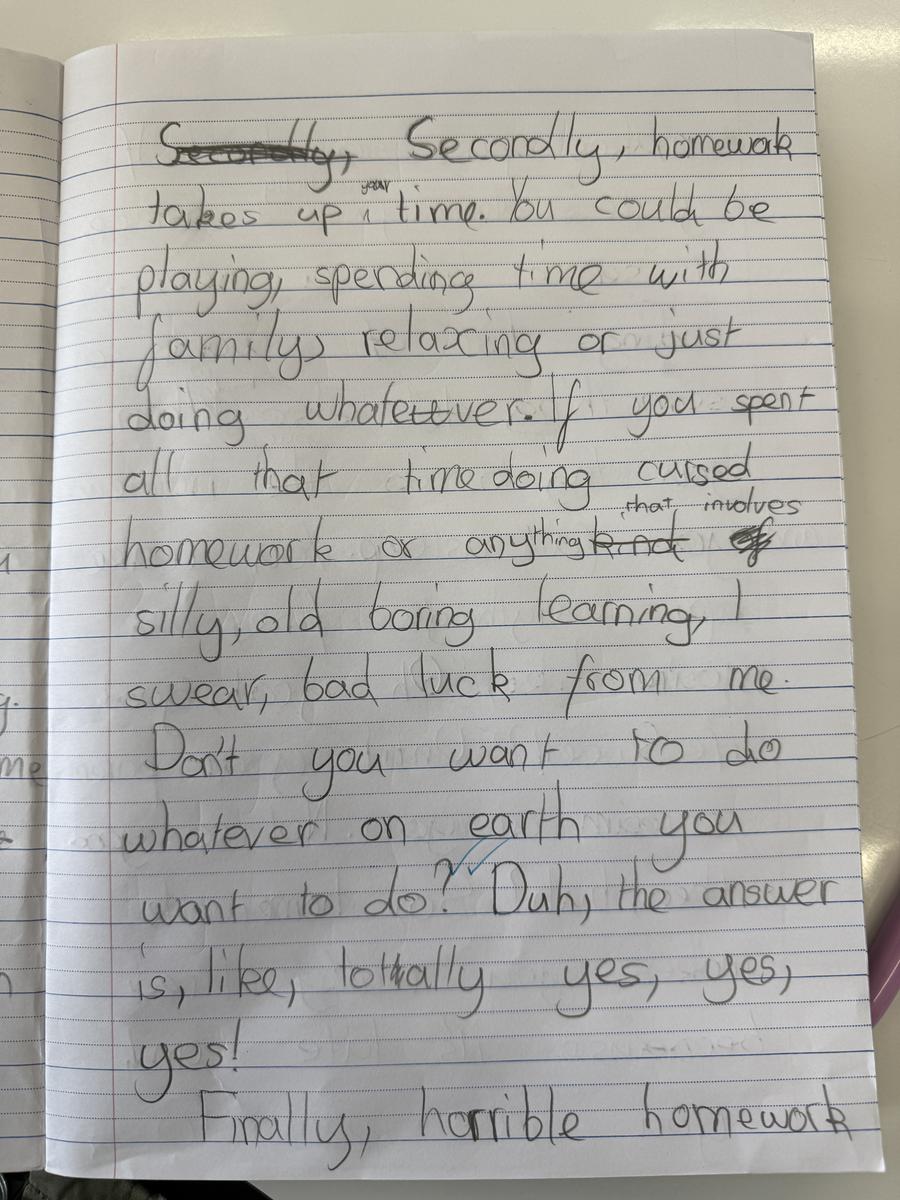 Secondly, Secondly, homework
takes up your time. You could be
playing, spending time with
family, relaxing or just
doing whatever. If you spent
all that time doing cursed
homework or anything that involves
silly, old boring learning, I
swear, bad luck from me.
Don't you want to do
whatever on earth you
want to do? Duh, the answer
is, like, totally yes, yes,
yes!
Finally, horrible homework